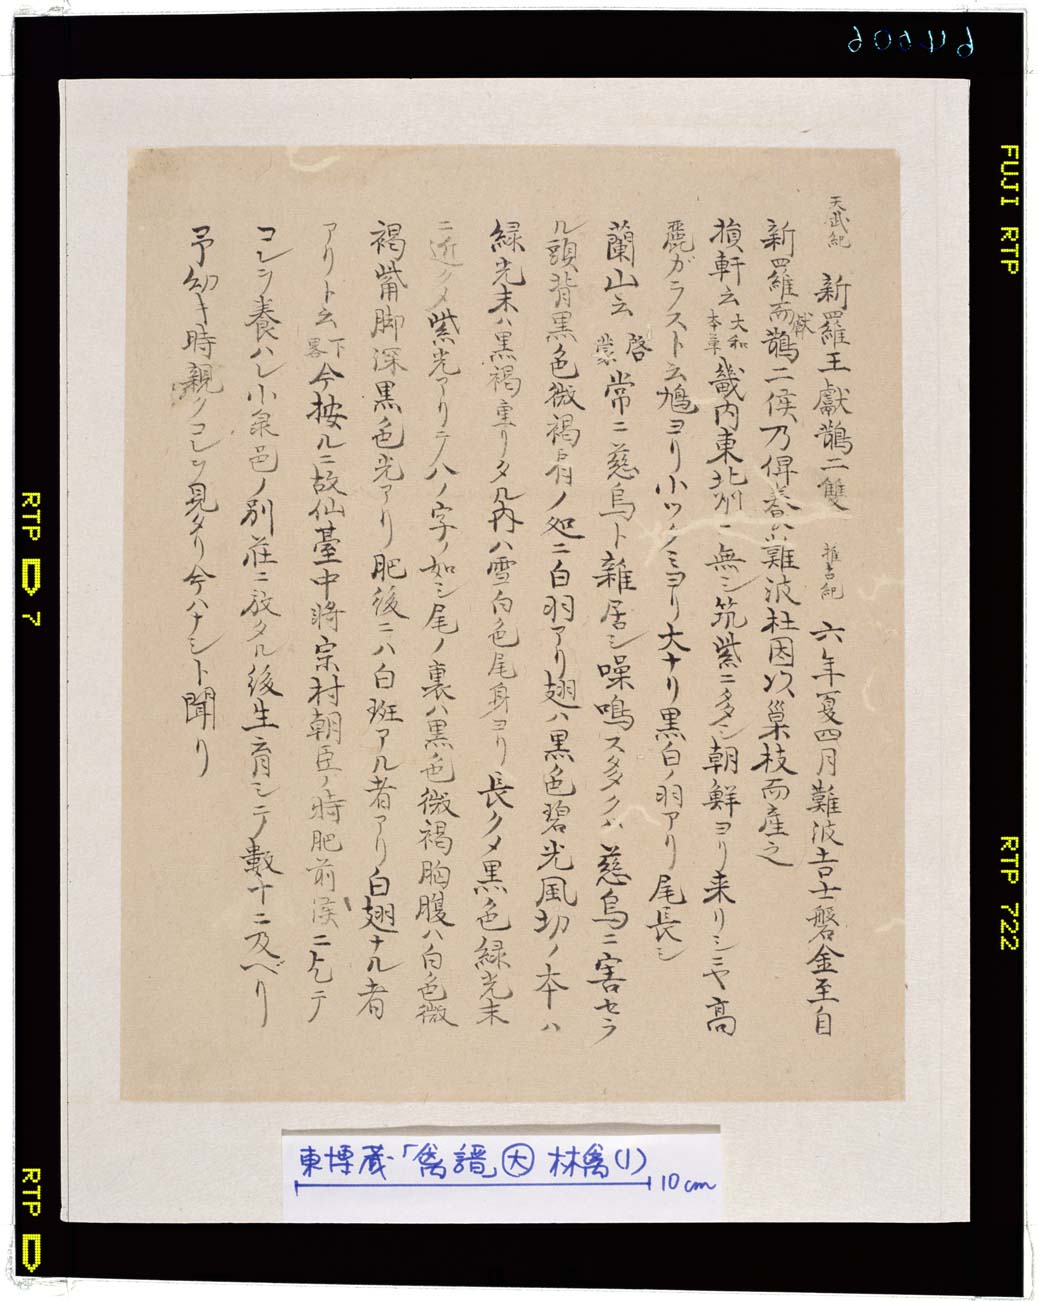 天武紀 新羅王献鵲二雙 推古紀 六年夏四月難波吉士磐金至自
新羅而献鵲二俟乃俾養於難波杜因以巣枝而産之
損軒云 大和本草 畿内東北州ニ無シ筑紫ニ多シ朝鮮ヨリ来リシニヤ高
麗ガラスト云鳩ヨリ小ツグミヨリ大ナリ黒白ノ羽アリ尾長シ
蘭山云 啓蒙 常ニ慈烏ト雑居シ噪鳴ス多クハ慈烏ニ害セラ
ル頭背黒色微褐肩ノ処ニ白羽アリ翅ハ黒色碧光風切ノ本ハ
緑光末ハ黒褐重リタル内ハ雪白色尾身ヨリ長クメ黒色緑光末
ニ近クメ紫光アリテ八ノ字ノ如シ尾ノ裏ハ黒色微褐胸腹ハ白色微
褐觜脚深黒色光アリ肥後ニハ白斑アル者アリ白翅ナル者
アリト云 下畧 今按ルニ故仙臺中将宗村朝臣ノ時肥前侯ニ乞テ
コレヲ養ハレ小泉邑ノ別荘ニ放タル後生育シテ数十ニ及ベリ
予幼キ時親クコレヲ見タリ今ハナシト聞リ
東博蔵「禽譜」大 林禽(1)
10cm
64606
FUJI RTP
RTP 722
RTP 7
RTP